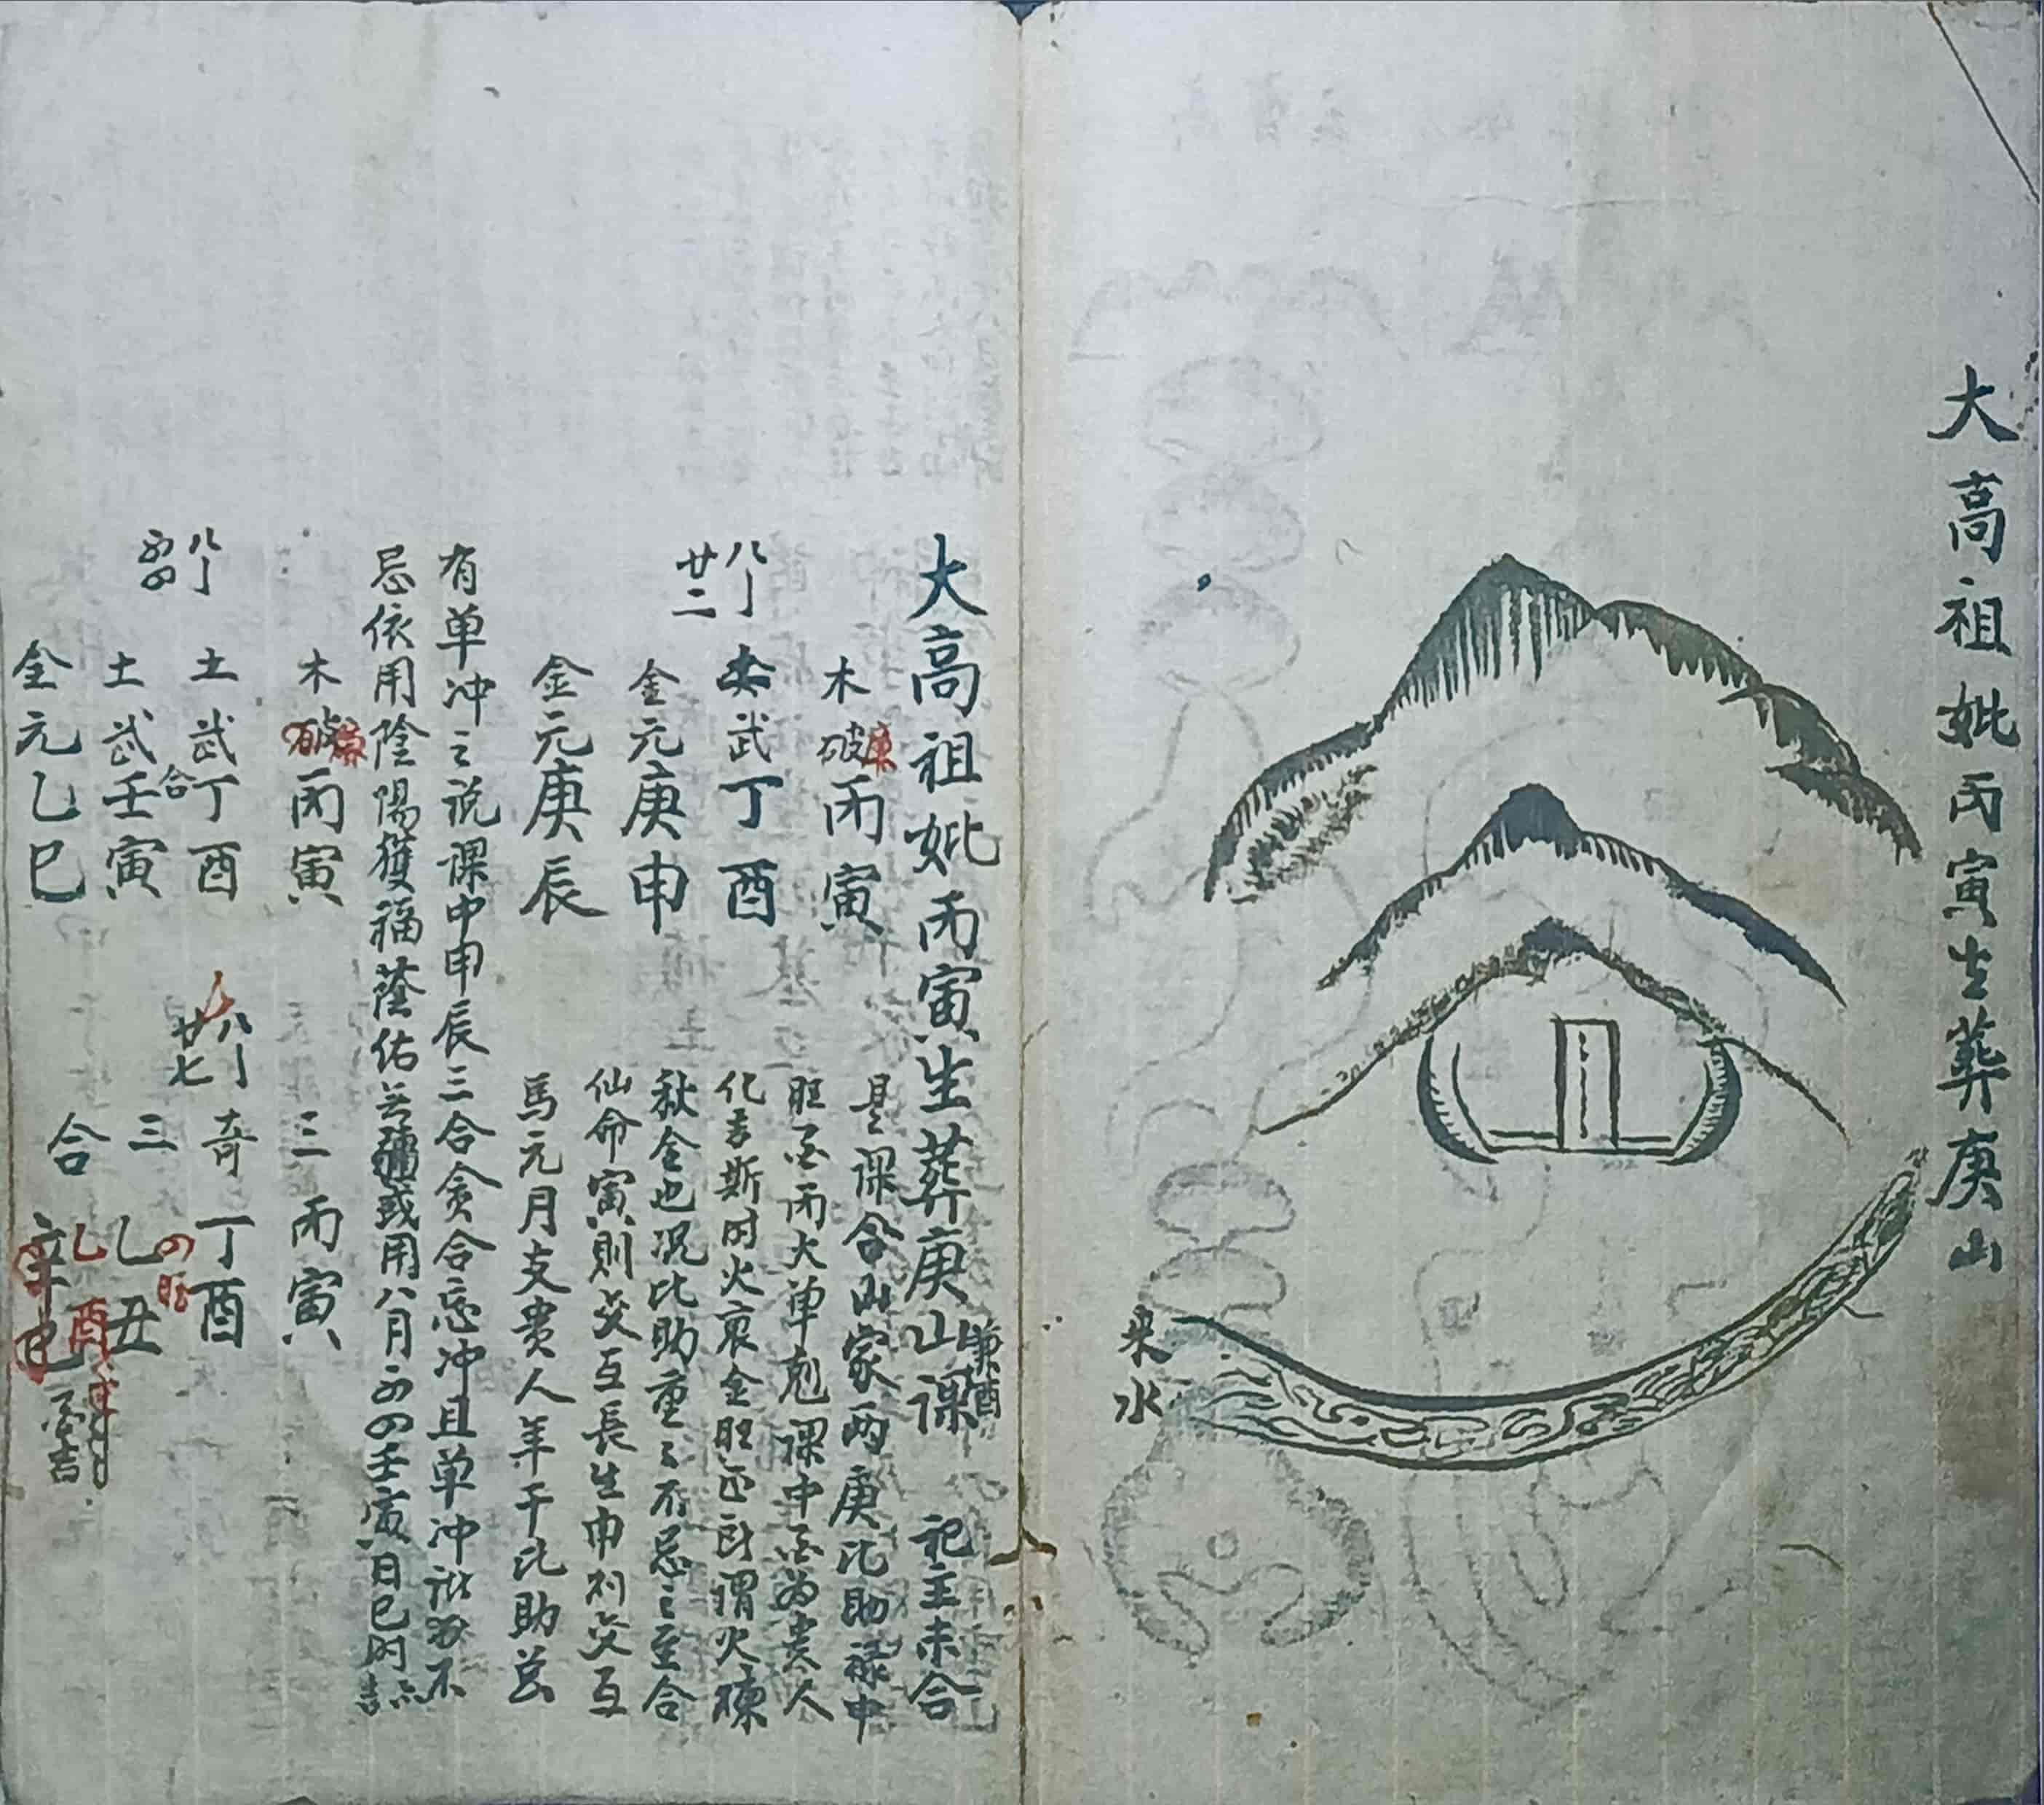 大高祖妣丙寅生葬庚山
来水
大高祖妣丙寅生葬庚山課 兼酉 祀主未合
木破廉丙寅
是課合山家两庚比助禄中
旺 丙火单尅課中 為贵人
八月
廿二
武丁酉
化 斯时火衰金旺正所謂火煉
金元庚申
秋金也况比助重〻不忌之至合
仙命寅則交互長生申 交互
金元庚辰
馬元月支贵人年干比助
有单冲之说課中申辰三合贪合忘冲且单冲 不
忌依用陰陽獲福蔭佑 或用八月 壬寅日巳时
木破廉丙寅
三丙寅
八月
土武丁酉
合
八月
廿七
奇丁酉
土武壬寅
三乙丑
金元乙巳
合辛巳
乙酉